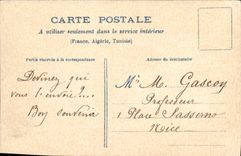 CARTE POSTALE
A utiliser seulement dans le service intérieur
(France, Algérie, Tunisie)
Partie réservée à la correspondance
Adresse du destinataire
Devinez qui
vous l'envoie?...
Bon souvenir
Mr M. Gascoy
Professeur
1 Place Sasserno
Nice